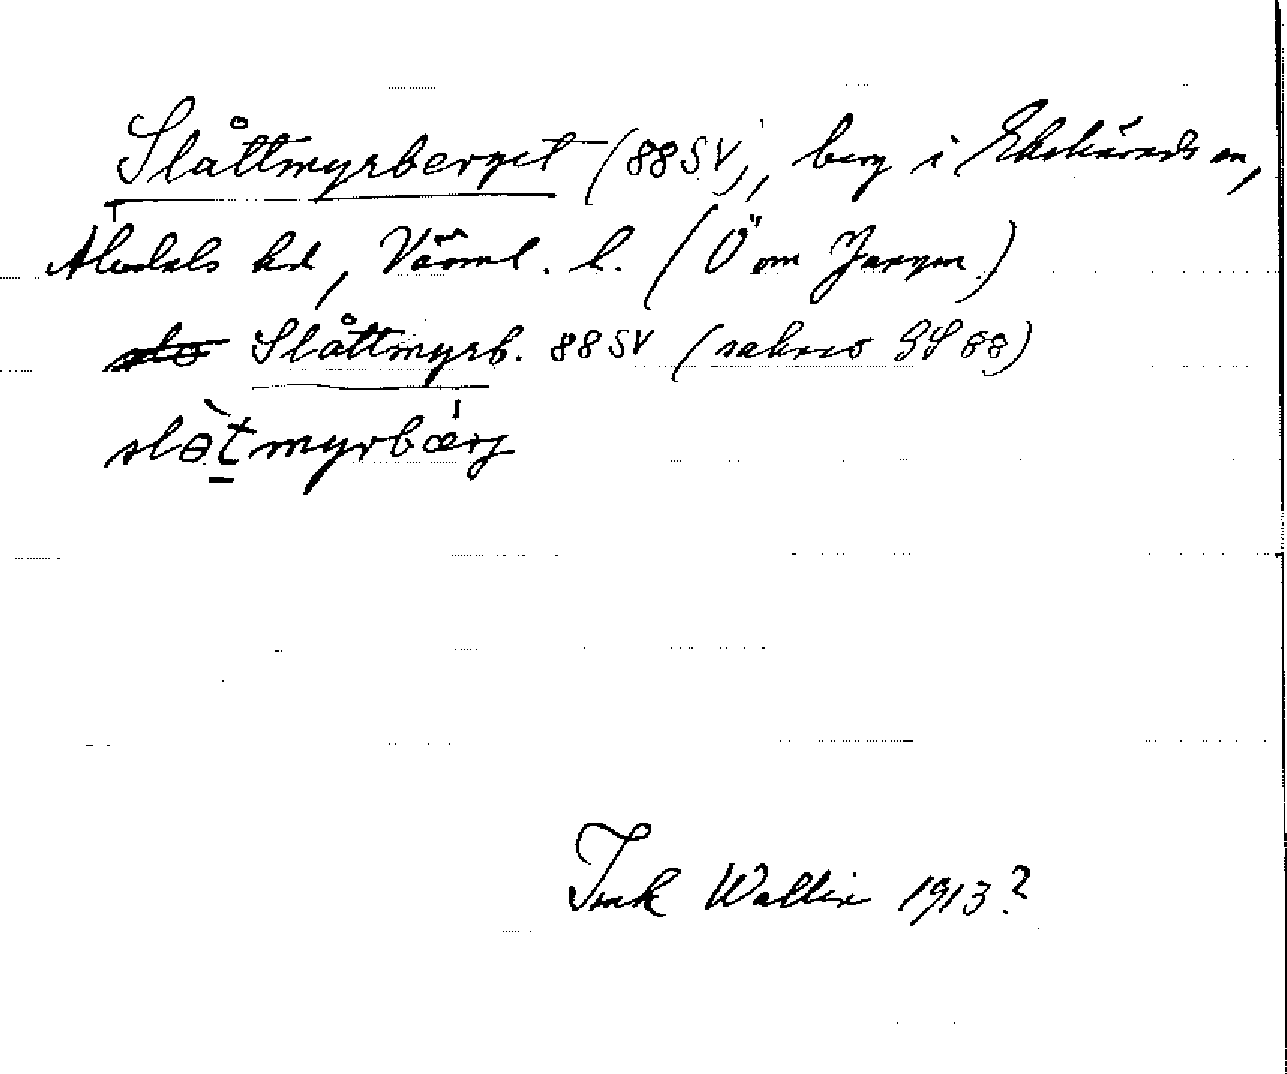 Slåttmyrberget (88SV), berg i Ekshärads sn,
Älvdals hd, Värml. l. (Ö om Jangen)
slo Slåttmyrb. 88SV (saknas GS 88)
slətmyrbærj
Wallin 1913?